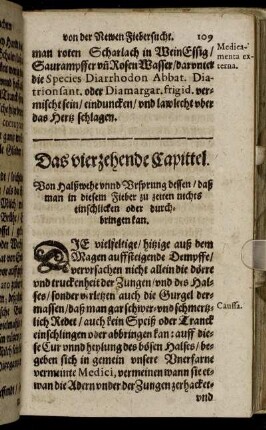 von der Newen Fiebersucht. 109
man roten Scharlach in WeinEssig/
Saurampffer vñ Rosen Wasser/darvnter
die Species Diarrhodon Abbat. Dia-
trionsant. oder Diamargar. frigid. ver-
mischt sein/ einduncken/ vnd lawlecht vber
das Hertz schlagen.
Medica-
menta ex-
terna.
Das vierzehende Capittel.
Von Halßwehe vnnd Vrsprung dessen/ daß
man in diesem Fieber zu zeiten nichts
einschlicken oder durch-
bringen kan.
DIE vielfeltige/ hitzige auß dem
Magen auffsteigende Dempffe/
vervrsachen nicht allein die dörre
vnd truckenheit der Zungen/ vnd des Hal-
ses/ sonder vrletzen auch die Gurgel der-
massen/ daß man gar schwer- vnd schmertz-
lich Redet/ auch kein Speiß oder Tranck
einschlingen oder abbringen kan: auff die-
se Cur vnnd heylung des bösen Halses/ be-
geben sich in gemein vnsere Vnerfarne
vermeinte Medici, vermeinen wann sie et-
wan die Adern vnder der Zungen zerhacket-
vnd
Caussa.